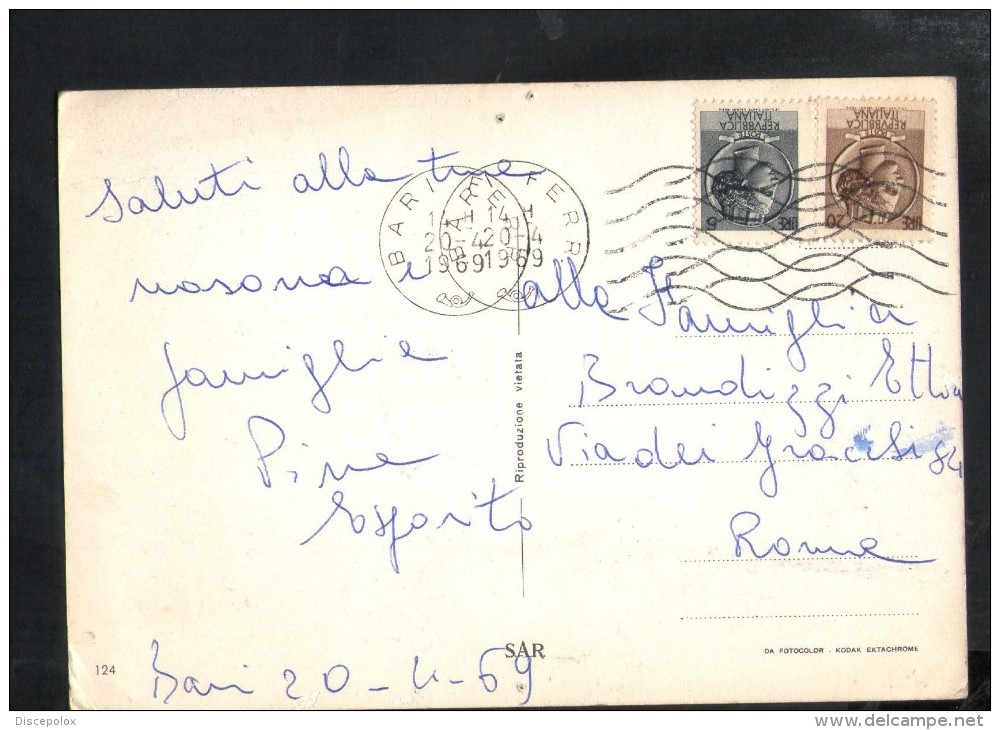 Saluti alla tua
famiglia
Pina
Esposito
Bari 20-4-69
alla Famiglia
Brandizzi Ettore
Via dei Gracchi 84
Roma
BARI FERR
14 H
20-4
1969
BARI FERR
14 H
20-4
1969
REPVBBLICA
ITALIANA
POSTE
LIRE 5
REPVBBLICA
ITALIANA
POSTE
LIRE 20
Riproduzione vietata
124
SAR
DA FOTOCOLOR - KODAK EKTACHROME
Discepolox
delcampe.net